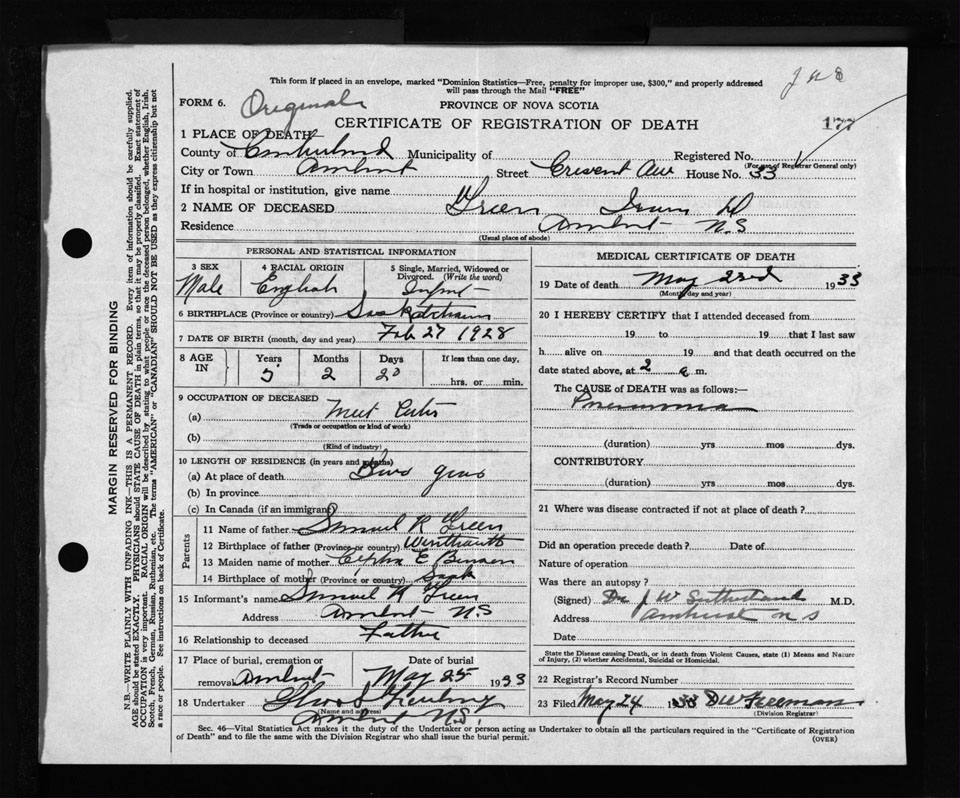 This form if placed in an envelope, marked "Dominion Statistics—Free, penalty for improper use, $300," and properly addressed
will pass through the Mail "FREE"
FORM 6. Original
PROVINCE OF NOVA SCOTIA
CERTIFICATE OF REGISTRATION OF DEATH 177
1 PLACE OF DEATH
County of Cumberland Municipality of Registered No.
(For use of Registrar General only)
City or Town Amherst Street Cresent Ave House No. 33
If in hospital or institution, give name
2 NAME OF DECEASED Green
Residence Amherst N.S
(Usual place of abode)
PERSONAL AND STATISTICAL INFORMATION
3 SEX 4 RACIAL ORIGIN 5 Single, Married, Widowed or
Divorced. (Write the word)
Male English Infant
6 BIRTHPLACE (Province or country) Saskatchewan
7 DATE OF BIRTH (month, day and year) Feb 27 1928
8 AGE IN Years Months Days If less than one day,
5 2 20 hrs. or min.
9 OCCUPATION OF DECEASED
(a)
(Trade or occupation or kind of work)
(b)
(Kind of industry)
10 LENGTH OF RESIDENCE (in years and months)
(a) At place of death years
(b) In province
(c) In Canada (if an immigrant)
Parents
11 Name of father Samuel R Green
12 Birthplace of father (Province or country)
13 Maiden name of mother E
14 Birthplace of mother (Province or country) Sask
15 Informant's name Samuel R Green
Address Amherst N.S
16 Relationship to deceased Father
17 Place of burial, cremation or Date of burial
removal Amherst May 25 1933
18 Undertaker
(Name and address)
Amherst N.S.
MEDICAL CERTIFICATE OF DEATH
19 Date of death May 23rd 1933
(Month, day and year)
20 I HEREBY CERTIFY that I attended deceased from
19 to 19 that I last saw
h alive on 19 and that death occurred on the
date stated above, at 2 a m.
The CAUSE of DEATH was as follows:—
Pneumonia
(duration) yrs mos dys.
CONTRIBUTORY
(duration) yrs mos dys.
21 Where was disease contracted if not at place of death?
Did an operation precede death? Date of
Nature of operation
Was there an autopsy?
(Signed) Dr J W Sutherland M.D.
Address Amherst N S
Date
State the Disease causing Death, or in death from Violent Causes, state (1) Means and Nature
of Injury, (2) whether Accidental, Suicidal or Homicidal.
22 Registrar's Record Number
23 Filed May 24 1933 D W Freeman
(Division Registrar)
Sec. 46—Vital Statistics Act makes it the duty of the Undertaker or person acting as Undertaker to obtain all the particulars required in the "Certificate of Registration
of Death" and to file the same with the Division Registrar who shall issue the burial permit.
(OVER)
MARGIN RESERVED FOR BINDING
N.B.—WRITE PLAINLY WITH UNFADING INK—THIS IS A PERMANENT RECORD. Every item of information should be carefully supplied.
AGE should be stated EXACTLY. PHYSICIANS should STATE CAUSE OF DEATH in plain terms, so that it may be properly classified. Exact statement of
OCCUPATION is very important. RACIAL ORIGIN will be described by stating to what people or race the deceased person belonged, whether English, Irish,
Scotch, French, German, Russian, Ruthenian, etc. The terms "AMERICAN" or "CANADIAN" SHOULD NOT BE USED as they express citizenship but not
a race or people. See instructions on back of Certificate.